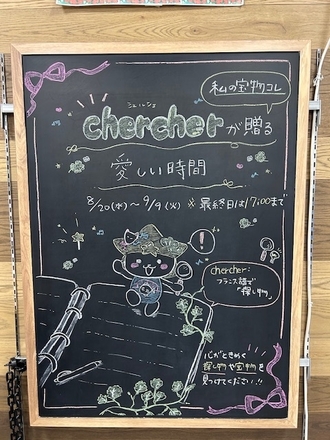 私の宝物コレ
シェルシェ
chercherが贈る
愛しい時間
8/20(水)～9/9(火) ※最終日は17:00まで
chercher:
フランス語で
「探し物」
心がときめく
探し物や宝物を
見つけてください!!